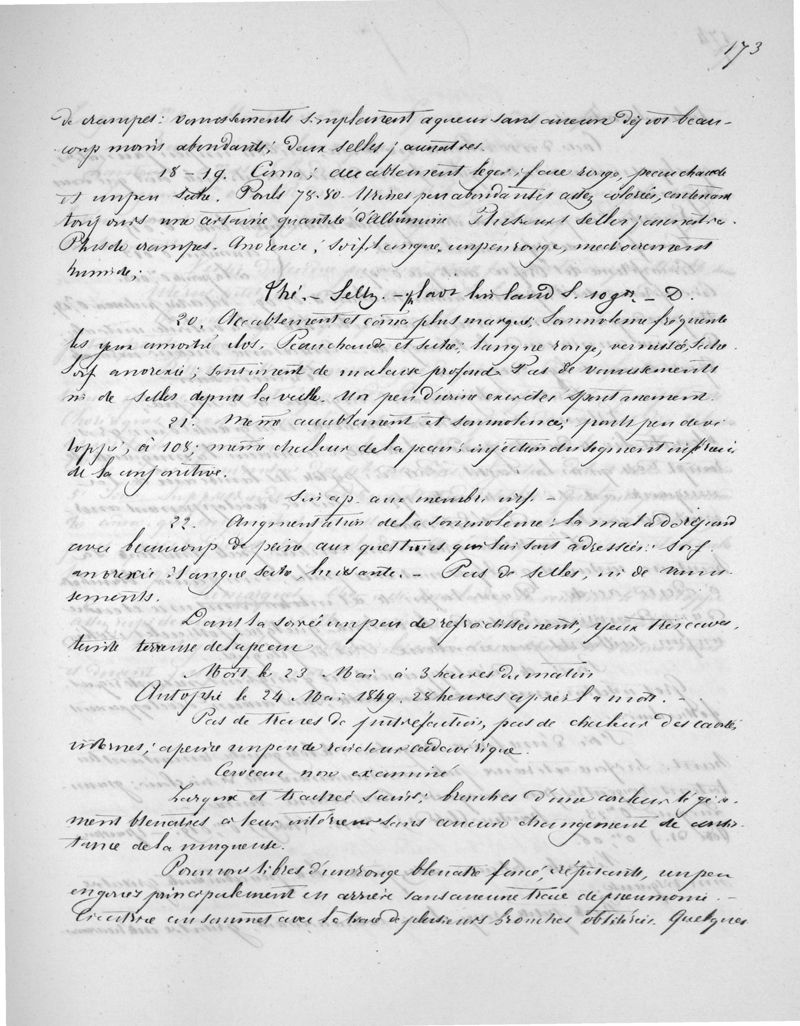 173
de crampes: vomissements simplement aqueux sans aucun dépot beau-
coup moins abondants; deux selles jaunatres.
18-19. Coma; accablement leger; face rouge, peau chaude
et un peu seche. Pouls 78.80. Urines peu abondantes assez colorées, contenant
toujours une certaine quantité d'albumine Plusieurs selles jaunatre.
Plus de crampes. Anorexie; Soif langue un peu rouge, mediocrement
humide;
Thé. - Seltz. - lav. laud S. 10 gtt. - D.
20. Accablement et coma plus marqué; Somnolence fréquente
les yeux à moitié clos. Peau chaude et seche; langue rouge, vernissée, seche
Soif anorexie; sentiment de malaise profond. Pas de vomissements
ni de selles depuis la veille. Un peu d'urine excretée spontanément.
21. Meme accablement et somnolence; pouls peu deve
loppé, à 108; meme chaleur de la peau: injection du segment inférieur
de la conjonctive.
Sinap. aux membres inf. -
22. Augmentation de la somnolence: la malade répond
avec beaucoup de peine aux questions qui lui sont adressées: Soif
anorexie: langue seche, luisante. - Pas de selles, ni de vomis-
sements.
Dans la soirée un peu de refroidissement, yeux très caves,
teinte terreuse de la peau
Mort le 23 Mai à 3 heures du matin
Autopsie le 24 Mai 1849, 28 heures après la mort. -
Pas de traces de putrefaction, pas de chaleur des cavités
internes; a peine un peu de roideur cadaverique.
Cerveau non examiné
Larynx et trachée sains; bronches d'une couleur légère-
ment bleuatres à leur intérieur sans aucun changement de consis-
tance de la muqueuse.
Poumons libres d'un rouge bleuatre foncé, crépitants, un peu
engoués principalement en arrière sans aucune trace de pneumonie. -
Cicatrice au sommet avec la trace de plusieurs bronches oblitérées. Quelques